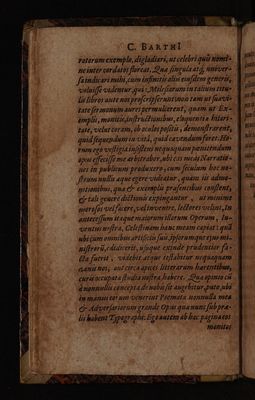 C. BARTHI
rotorum exemplo, digladiari, ut celebri quis nomi-
ne inter cordatos floreat. Quæ singula atq; univer-
sa indicari mihi, cum infinitis aliis ejusdem generis,
voluisse videntur, qui Milesiarum in talium titu-
lis libros ante nos proscripserunt imo tam ut suavi-
tate sermonum aures permulcerent, quam ut Ex-
emplis, monitis, instructionibus, eloquentiæ hilari-
tate, velut coram, ob oculos positis, demonstrarent,
quid sequendum in vitâ, quid cavendum foret. Ho-
rum ego vestigia insistens nequaquam pœnitendum
opus effecisse me arbitrabor, ubi eas meas Narratio-
nes in publicum produxero, cum seculum hoc no-
strum nullis æque egere videatur, quam iis admo-
nitionibus, quæ & exemplis præsentibus constent,
& tali genere dictionis expingantur, ut minime
morosis vel facere, vel invenire, lectores velint. In
antecessum itaque majorum illorum Operum, Ju-
ventus nostra, Celestinam hanc meam capiat: quâ
ubi cum omnibus artificiis suis, ipsorumque ejus mi-
nistrorum, edidicerit, usque extinde prudentior fa-
cta fuerit, videbit atque testabitur nequaquam
cæcis nos, aut circa apices litterarum hærentibus,
curis occupata studia nostra habere. Quæ opinio cû
à nonnullis concepta de nobis sit augebitur, puto, ubi
in manus eorum venerint Poemata nonnulla nota
& Adversariorum grande Opus quæ nunc sub præ-
lis habent Typographi. Ego autem ab hac pagina eos
monitos